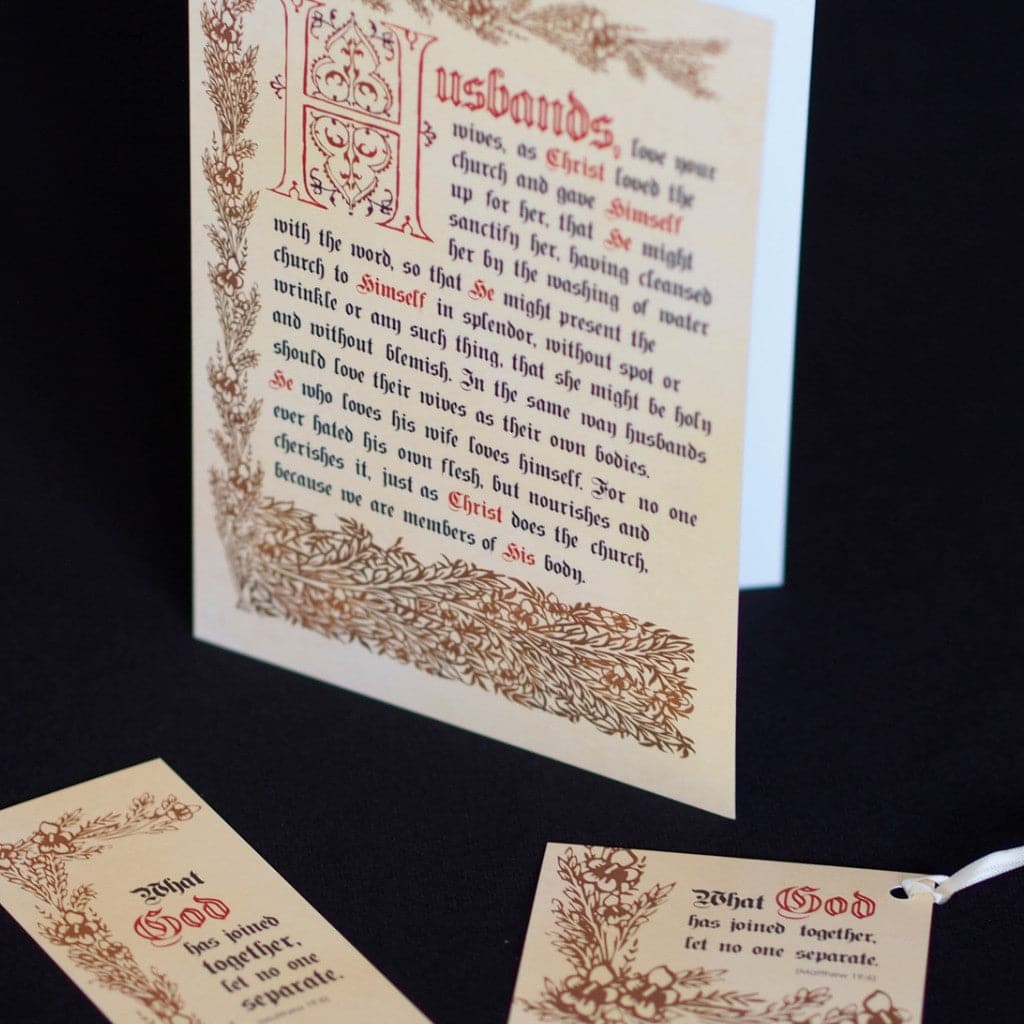 Husbands, love your
wives, as Christ loved the
church and gave Himself
up for her, that He might
sanctify her, having cleansed
her by the washing of water
with the word, so that He might present the
church to Himself in splendor, without spot or
wrinkle or any such thing, that she might be holy
and without blemish. In the same way husbands
should love their wives as their own bodies.
He who loves his wife loves himself. For no one
ever hated his own flesh, but nourishes and
cherishes it, just as Christ does the church,
because we are members of His body.
What
God
has joined
together,
let no one
separate.
(Matthew 19:6)
What God
has joined together,
let no one separate.
(Matthew 19:6)